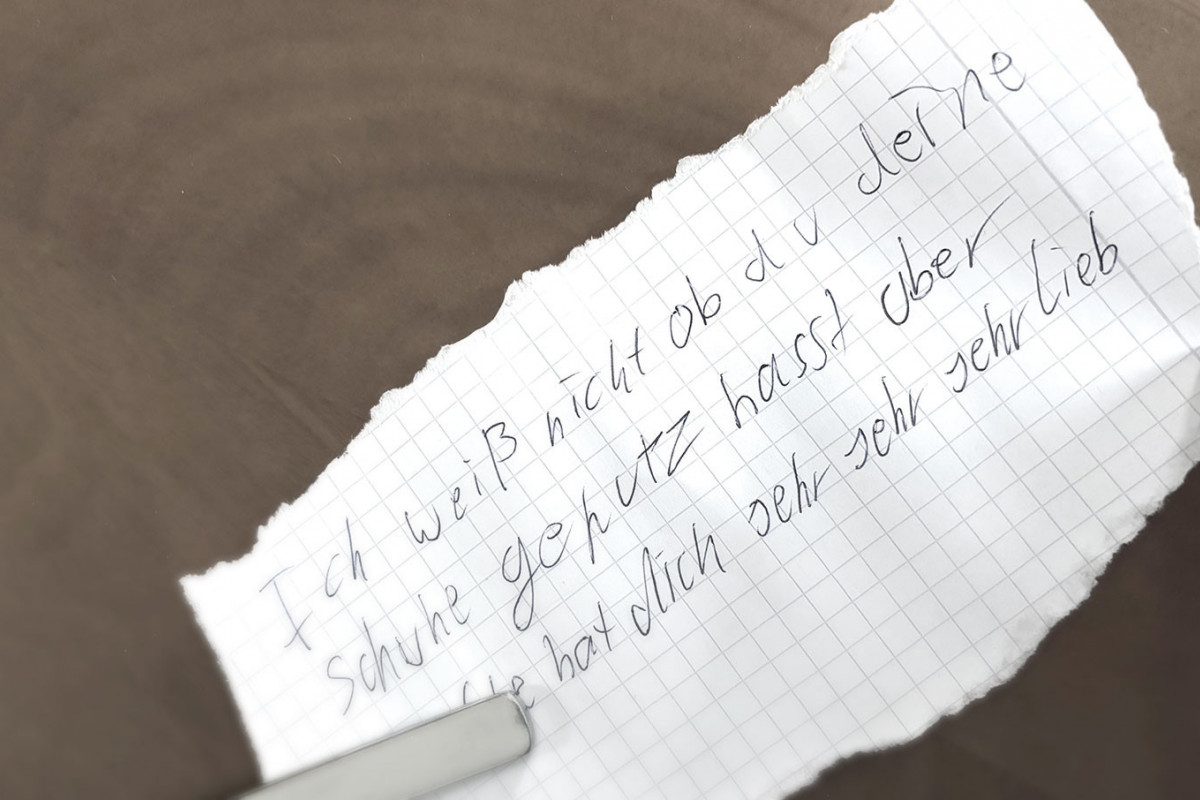 Ich weiß nicht ob du deine
schuhe gehutz hasst aber
hat dich sehr sehr sehr lieb